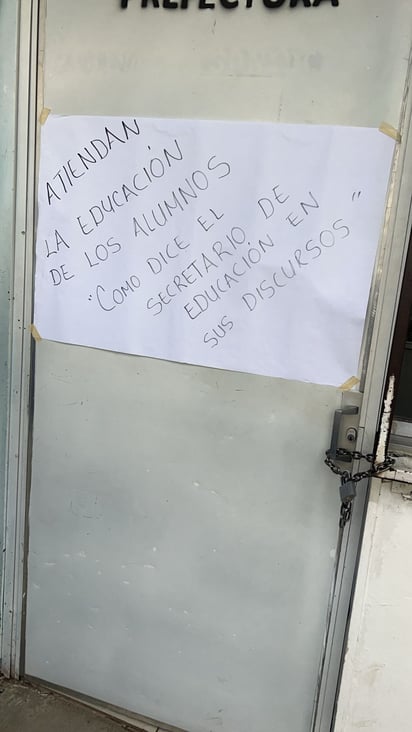 PREFECTURA
ATIENDAN
LA EDUCACIÓN
DE LOS ALUMNOS
"COMO DICE EL
SECRETARIO DE
EDUCACIÓN EN
SUS DISCURSOS"